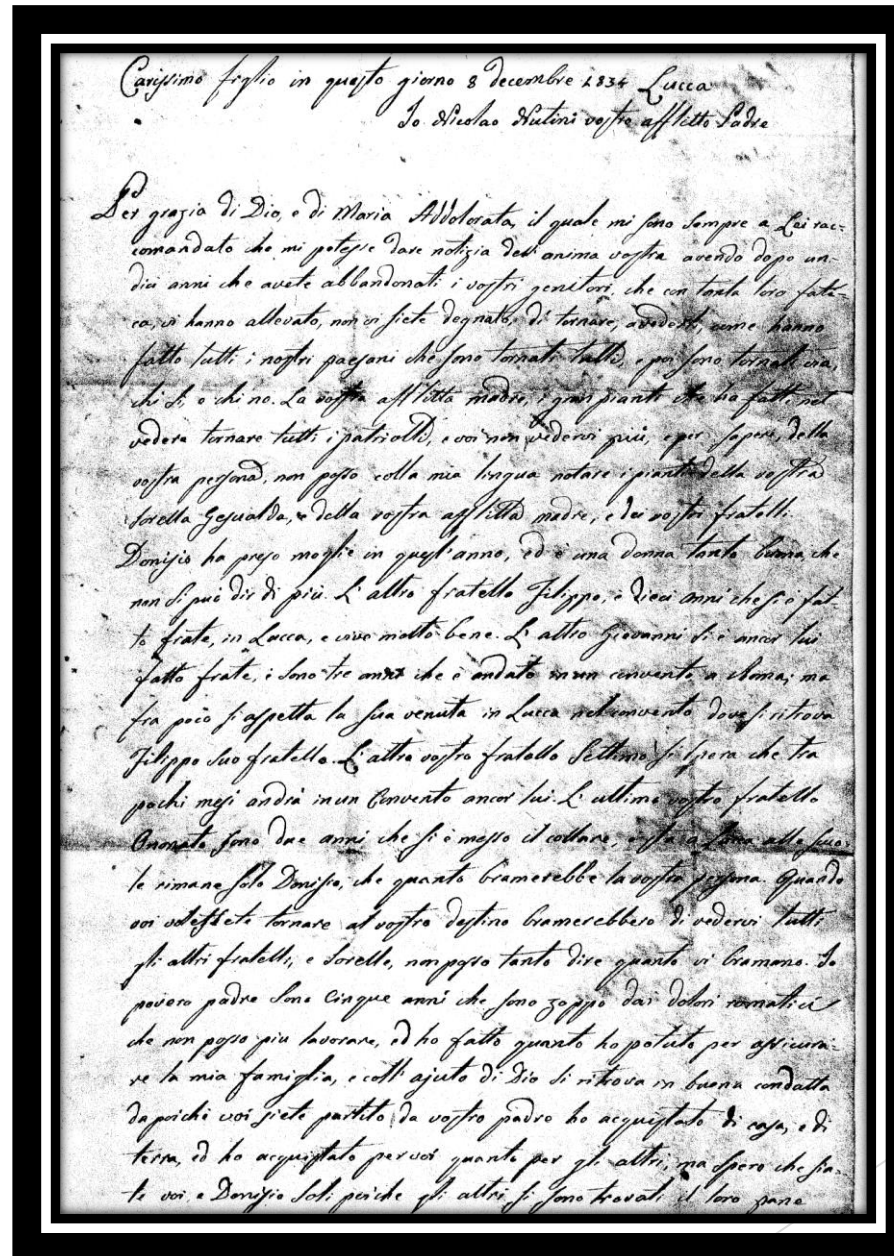 Carissimo figlio in questo giorno 8 decembre 1834 Lucca
Io Nicolao Nutini vostro afflitto Padre
Per grazia di Dio, e di Maria Addolorata, il quale mi sono sempre a Lei rac=
comandato che mi potesse dare notizia dell'anima vostra avendo dopo un=
dici anni che avete abbandonati i vostri genitori, che con tanta loro fati=
ca, vi hanno allevato, non vi siete degnato, di tornare, a vederli, come hanno
fatto tutti i nostri paesani che sono tornati tutti, e poi sono tornati via,
chi si, e chi no. La vostra afflitta madre, i gran pianti che ha fatti, nel
vedere tornare tutti i patriotti, e voi non vedervi più, e per sapere, della
vostra persona, non posso colla mia lingua notare i pianti della vostra
sorella Gesualda, e della vostra afflitta madre, e dei vostri fratelli.
Donisio ha preso moglie in quest'anno, ed è una donna tanto buona, che
non si può dir di più. L'altro fratello Filippo, è dieci anni che si è fat=
to frate, in Lucca, e vive molto bene. L'altro Giovanni si è ancor lui
fatto frate, i sono tre anni che è andato in un convento a Roma; ma
fra poco si aspetta la sua venuta in Lucca nel convento dove si ritrova
Filippo suo fratello. L'altro vostro fratello Settimo si spera che tra
pochi mesi andrà in un Convento ancor lui. L'ultimo vostro fratello
Onorato sono due anni che si è messo il collare, e sta a Lucca alle scuo=
le rimane solo Donisio, che quanto bramerebbe la vostra persona. Quando
voi volessete tornare al vostro destino bramerebbero di vedervi tutti
gli altri fratelli, e sorelle, non posso tanto dire quanto vi bramano. Io
povero padre sono cinque anni che sono zoppo dai dolori romatici
che non posso piu lavorare, ed ho fatto quanto ho potuto per assicura=
re la mia famiglia, e coll'ajuto di Dio si ritrova in buona condatta
da poichè voi siete partito, da vostro padre ho acquistato di casa, e di
terra, ed ho acquistato per voi quanto per gli altri, ma spero che sia=
te voi e Donisio soli poichè gli altri si sono trovati il loro pane